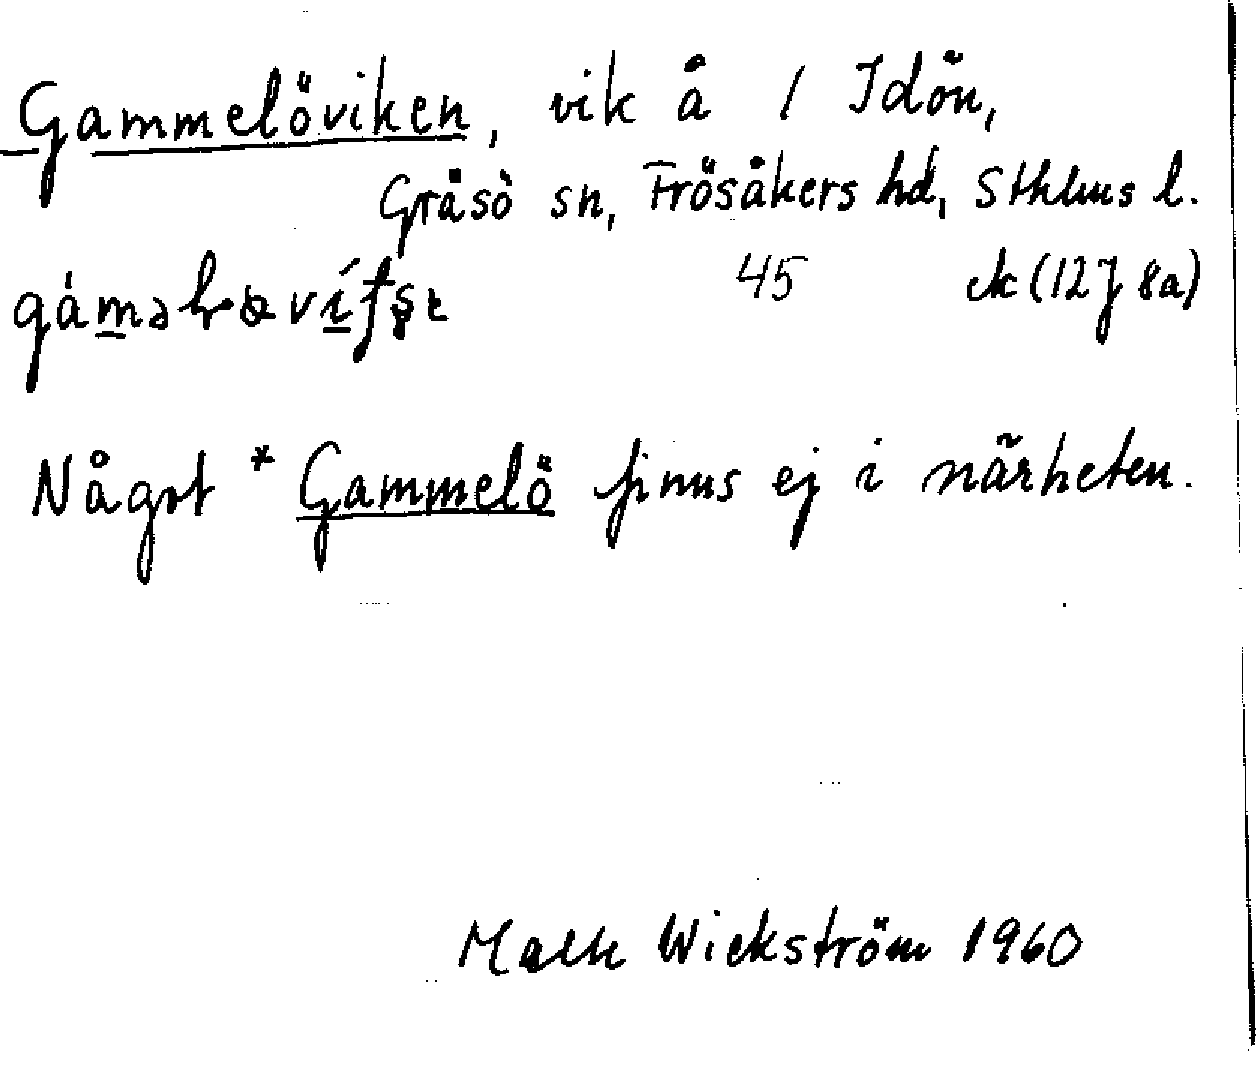 Gammelöviken, vik å / Idön,
Gräsö sn, Frösåkers hd, Sthlms l.
45 ek (12J 8a)
Något *Gammelö finns ej i närheten.
Wickström 1960